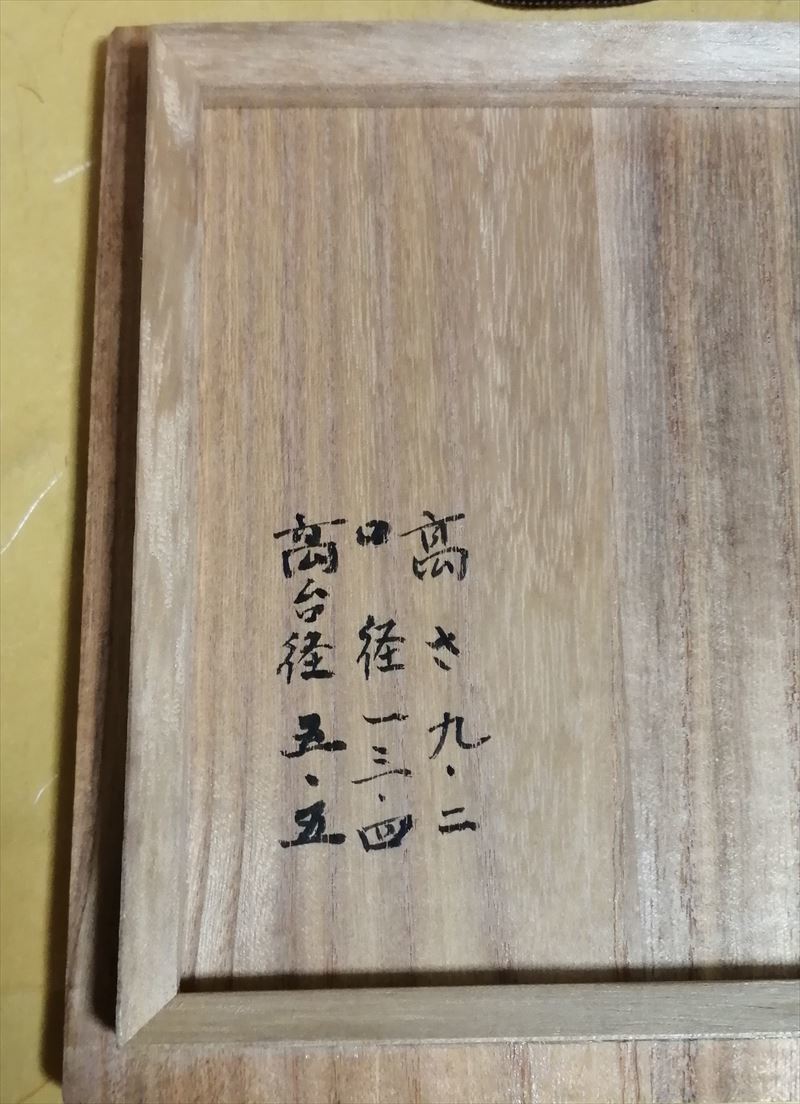 高さ九・二
口径一三・四
高台径五・五